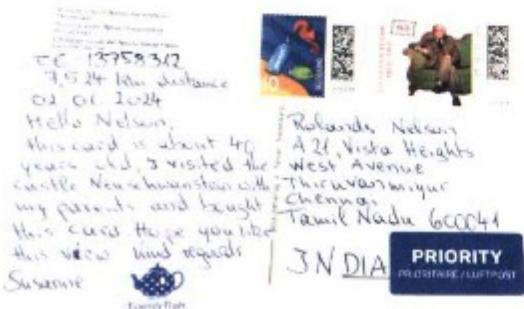 DE - 13758312
7,524 km distance
02.01.2024
Hello Nelson,
this card is about 40
years old, I visited the
castle Neuschwanstein with
my parents and bought
this card. Hope you like
this view kind regards
Susanne
Rolands Nelson
A21, Vista Heights
West Avenue
Thiruvanmiyur
Chennai
Tamil Nadu 600041
INDIA
PRIORITY
PRIORITAIRE / LUFTPOST